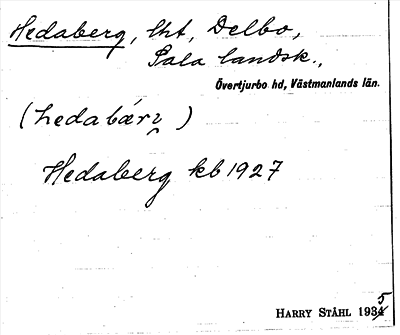 Hedaberg, lht, Delbo,
Sala landsk.,
Övertjurbo hd, Västmanlands län.
(hedabærj )
Hedaberg kb 1927
HARRY STÅHL 1935